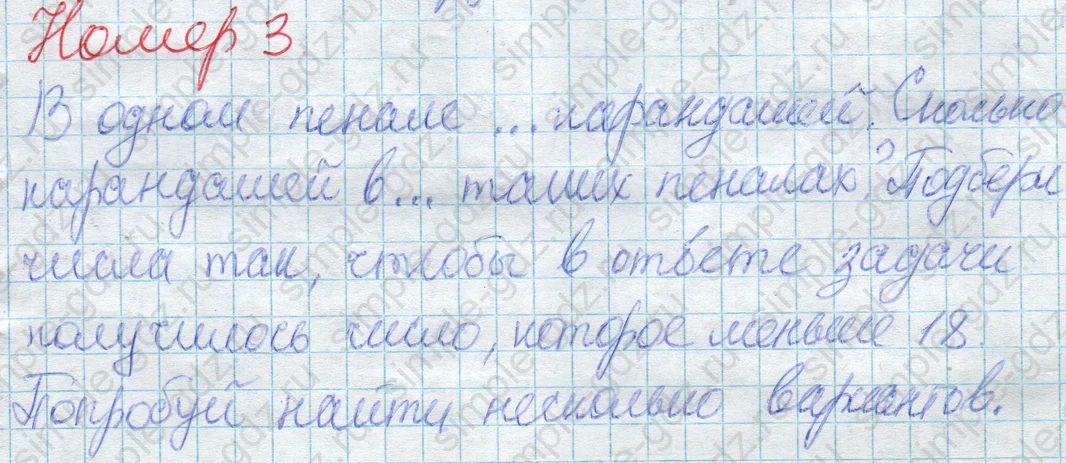 Номер 3
В одном пенале ... карандашей. Сколько
карандашей в ... таких пеналах? Подбери
числа так, чтобы в ответе задачи
получилось число, которое меньше 18.
Попробуй найти несколько вариантов.
simple-gdz.ru